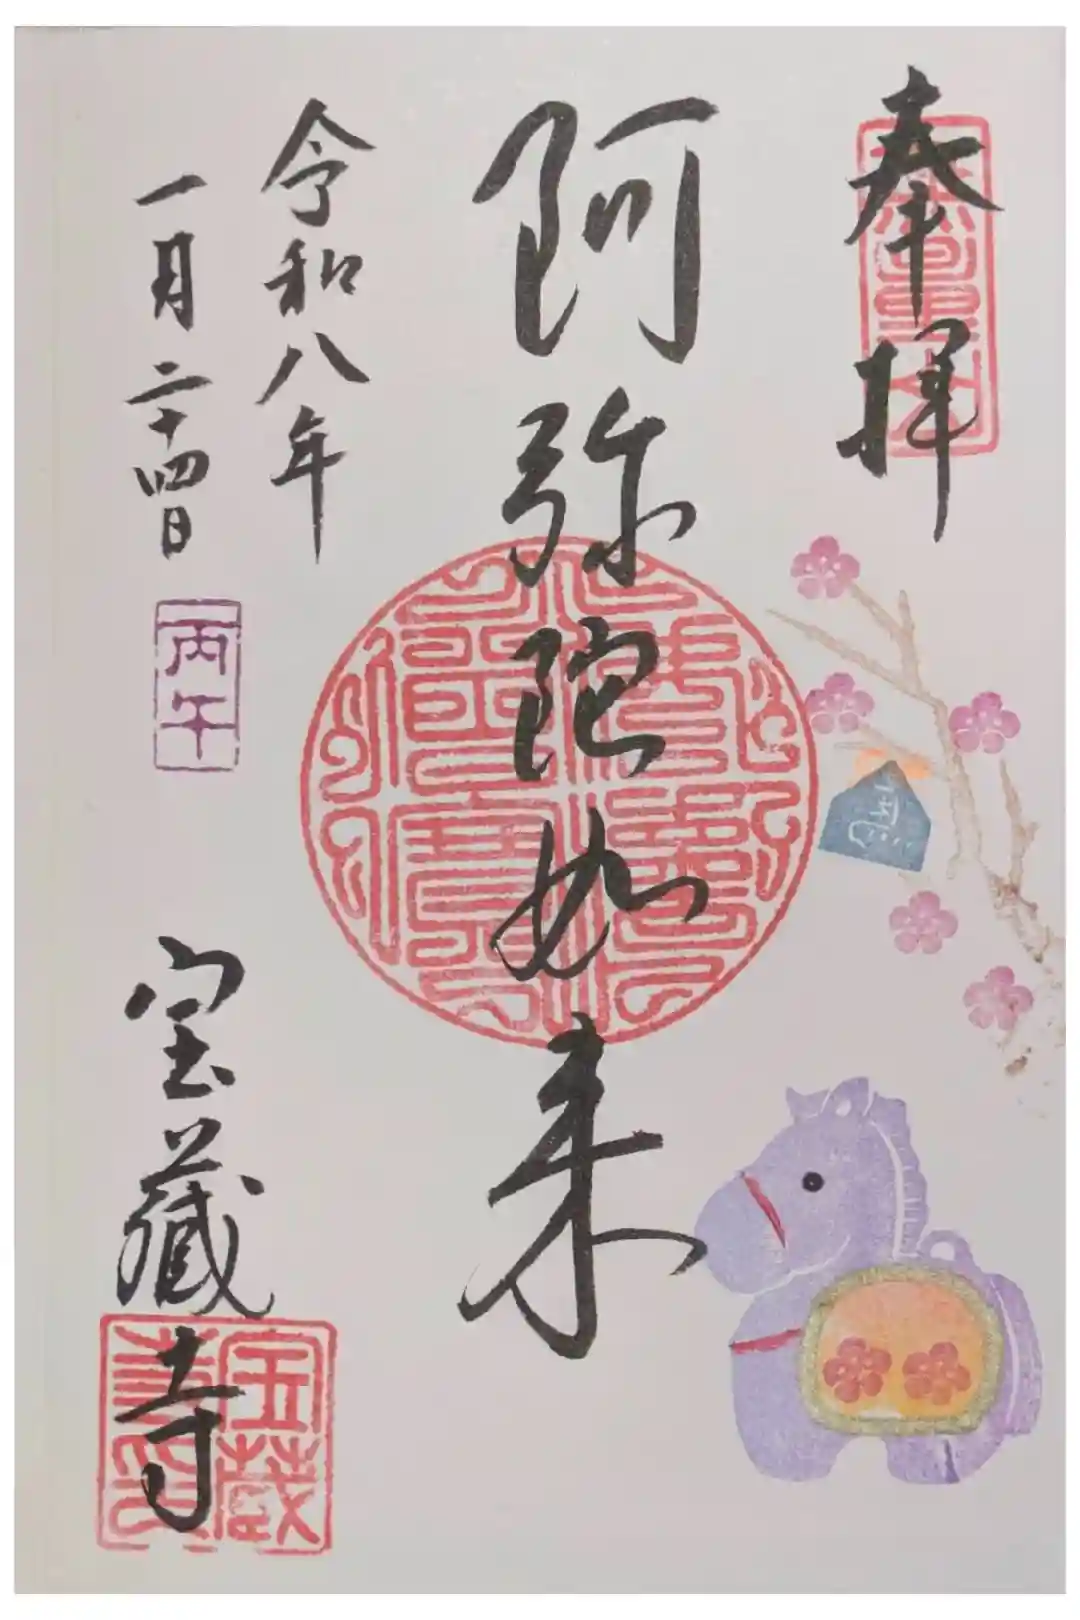 奉拝
阿弥陀如来
令和八年
一月二十四日
丙午
宝蔵寺
宝蔵寺印